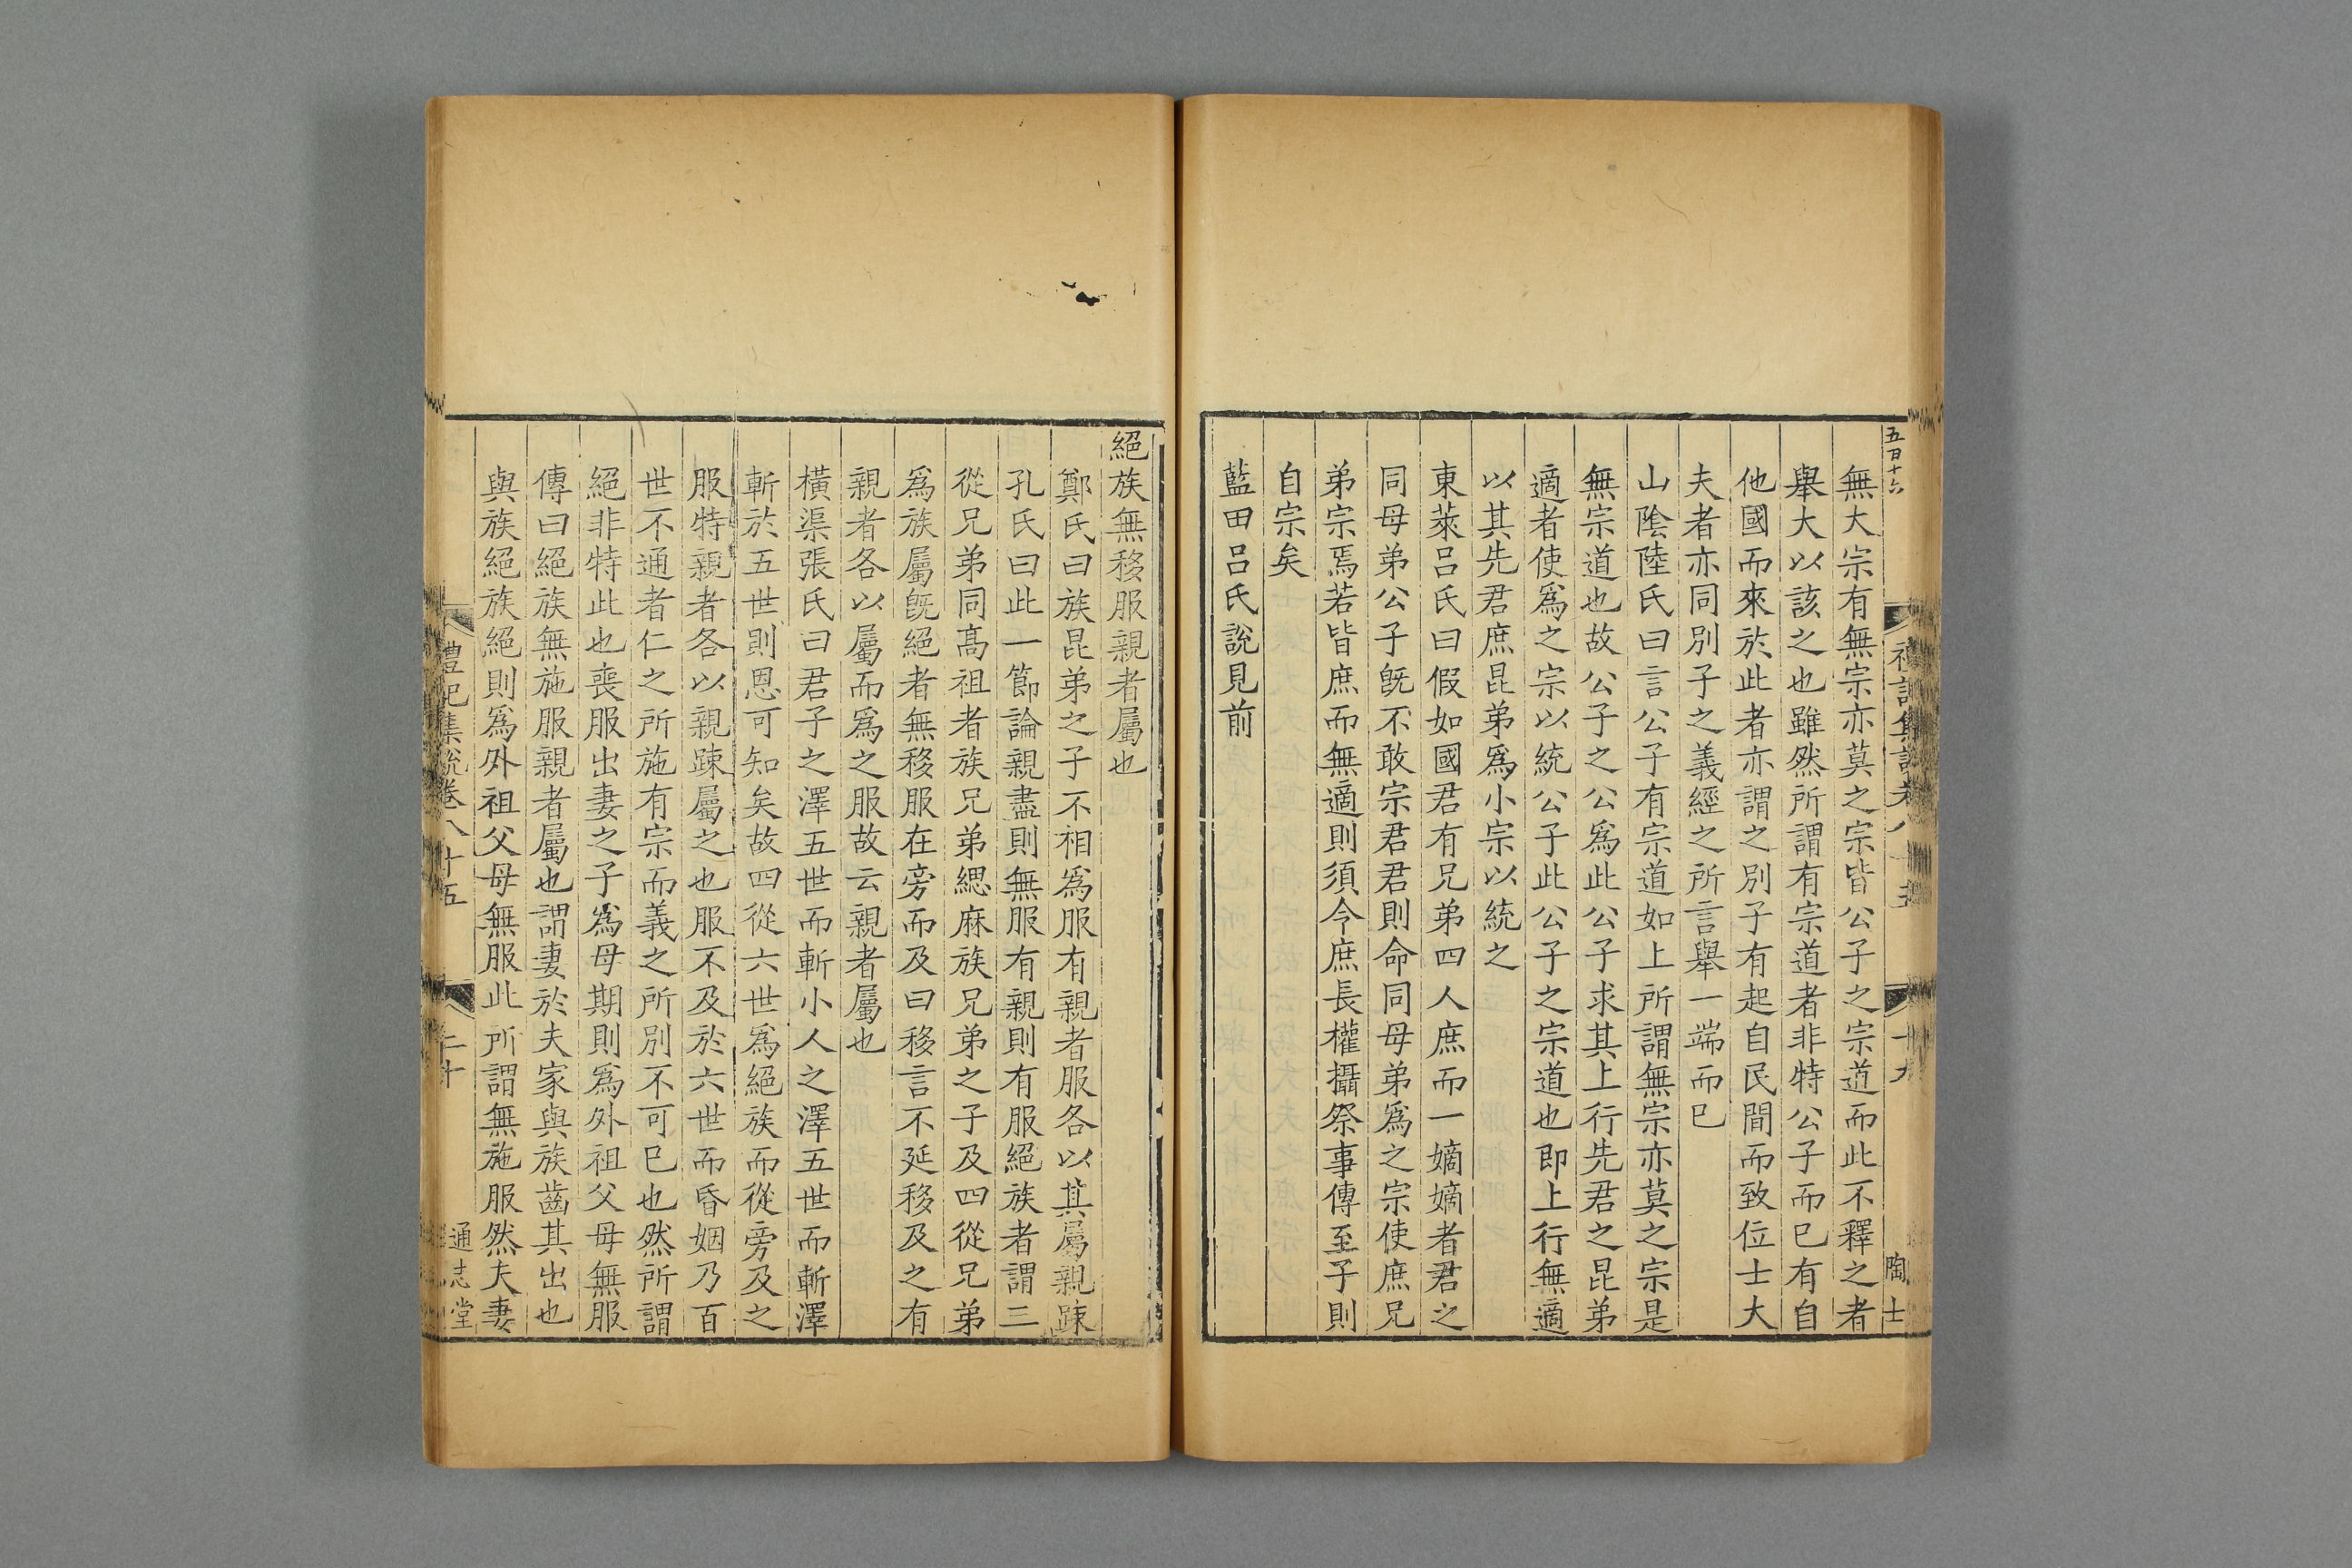 五百十六
禮記集說卷八十五
十九
陶士
無大宗有無宗亦莫之宗皆公子之宗道而此不釋之者
舉大以該之也雖然所謂有宗道者非特公子而巳有自
他國而來於此者亦謂之別子有起自民間而致位士大
夫者亦同別子之義經之所言舉一端而巳
山陰陸氏曰言公子有宗道如上所謂無宗亦莫之宗是
無宗道也故公子之公爲此公子求其上行先君之昆弟
適者使爲之宗以統公子此公子之宗道也即上行無適
以其先君庶昆弟爲小宗以統之
東萊呂氏曰假如國君有兄弟四人庶而一嫡嫡者君之
同母弟公子旣不敢宗君君則命同母弟爲之宗使庶兄
弟宗焉若皆庶而無適則須令庶長權攝祭事傳至子則
自宗矣
藍田呂氏說見前
絕族無移服親者屬也
鄭氏曰族昆弟之子不相爲服有親者服各以其屬親疎
孔氏曰此一節論親盡則無服有親則有服絕族者謂三
從兄弟同高祖者族兄弟緦麻族兄弟之子及四從兄弟
爲族屬旣絕者無移服在旁而及曰移言不延移及之有
親者各以屬而爲之服故云親者屬也
橫渠張氏曰君子之澤五世而斬小人之澤五世而斬澤
斬於五世則恩可知矣故四從六世爲絕族而從旁及之
服特親者各以親疎屬之也服不及於六世而昏姻乃百
世不通者仁之所施有宗而義之所別不可巳也然所謂
絕非特此也喪服出妻之子爲母期則爲外祖父母無服
傳曰絕族無施服親者屬也謂妻於夫家與族齒其出也
與族絕族絕則爲外祖父母無服此所謂無施服然夫妻
禮記集說卷八十五
二十
通志堂